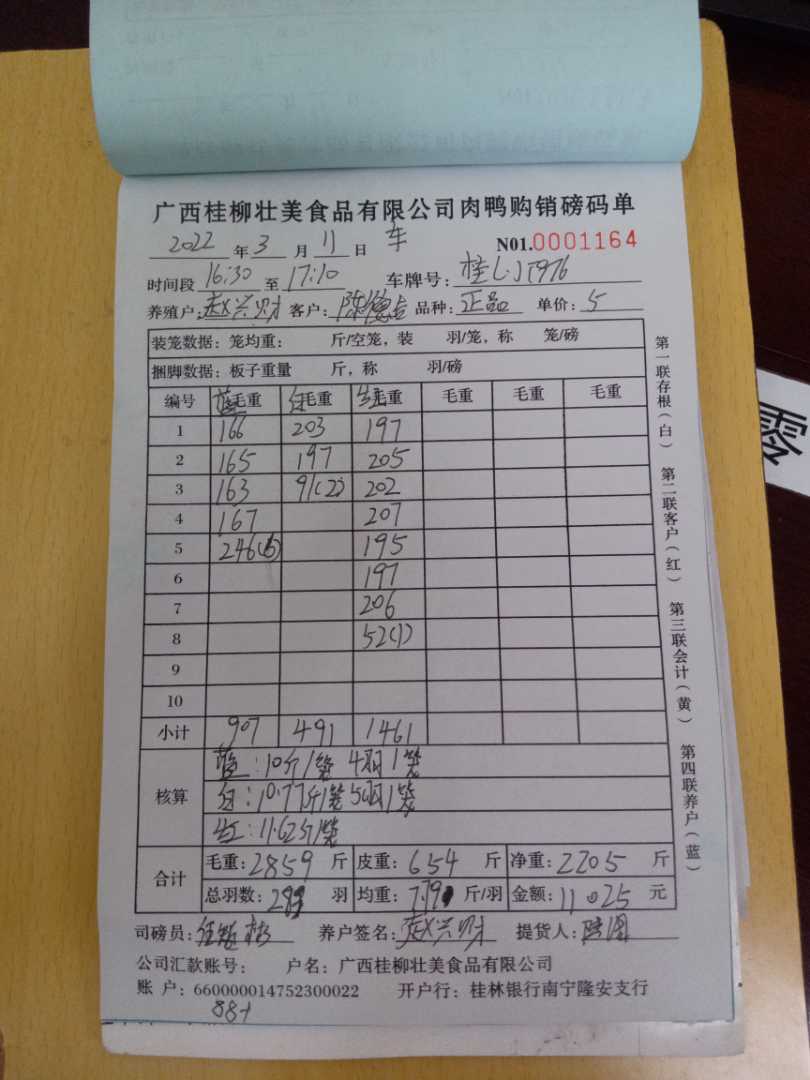 广西桂柳壮美食品有限公司肉鸭购销磅码单
2022 年 3 月 11 日 车 N01.0001164
时间段 16:30 至 17:10 车牌号:
养殖户: 赵兴财 客户: 陈德 品种: 正品 单价: 5
装笼数据: 笼均重: 斤/空笼, 装 羽/笼, 称 笼/磅
捆脚数据: 板子重量 斤, 称 羽/磅
编号 蓝毛重 红毛重 毛重 毛重 毛重 毛重
1 166 203 197
2 165 197 205
3 163 91(2) 202
4 167 207
5 246 195
6 197
7 206
8 52(1)
9
10
小计 907 491 1461
核算 蓝:10斤/笼 4羽1笼
红:10.77斤/笼 5羽1笼
:11.62斤/笼
合计 毛重:2859 斤 皮重:654 斤 净重:2205 斤
总羽数: 羽 均重: 斤/羽 金额:11025 元
司磅员: 养户签名: 赵兴财 提货人:
公司汇款账号: 户名: 广西桂柳壮美食品有限公司
账 户: 660000014752300022 开户行: 桂林银行南宁隆安支行
第一联存根(白) 第二联客户(红) 第三联会计(黄) 第四联养户(蓝)
零